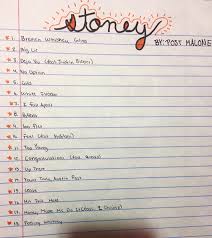 Stoney
BY: POST MALONE
1. Broken Whiskey Glass
2. Big Lie
3. Deja Vu (feat. Justin Bieber)
4. No Option
5. Cold
6. White Iverson
7. I Fall Apart
8. Patient
9. Go Flex
10. Feel (feat. Kehlani)
11. Too Young
12. Congratulations (feat. Quavo)
13. Up There
14. Yours Truly, Austin Post
15. Leave
16. Hit This Hard
17. Money Made Me Do It
18. Feeling Whitney